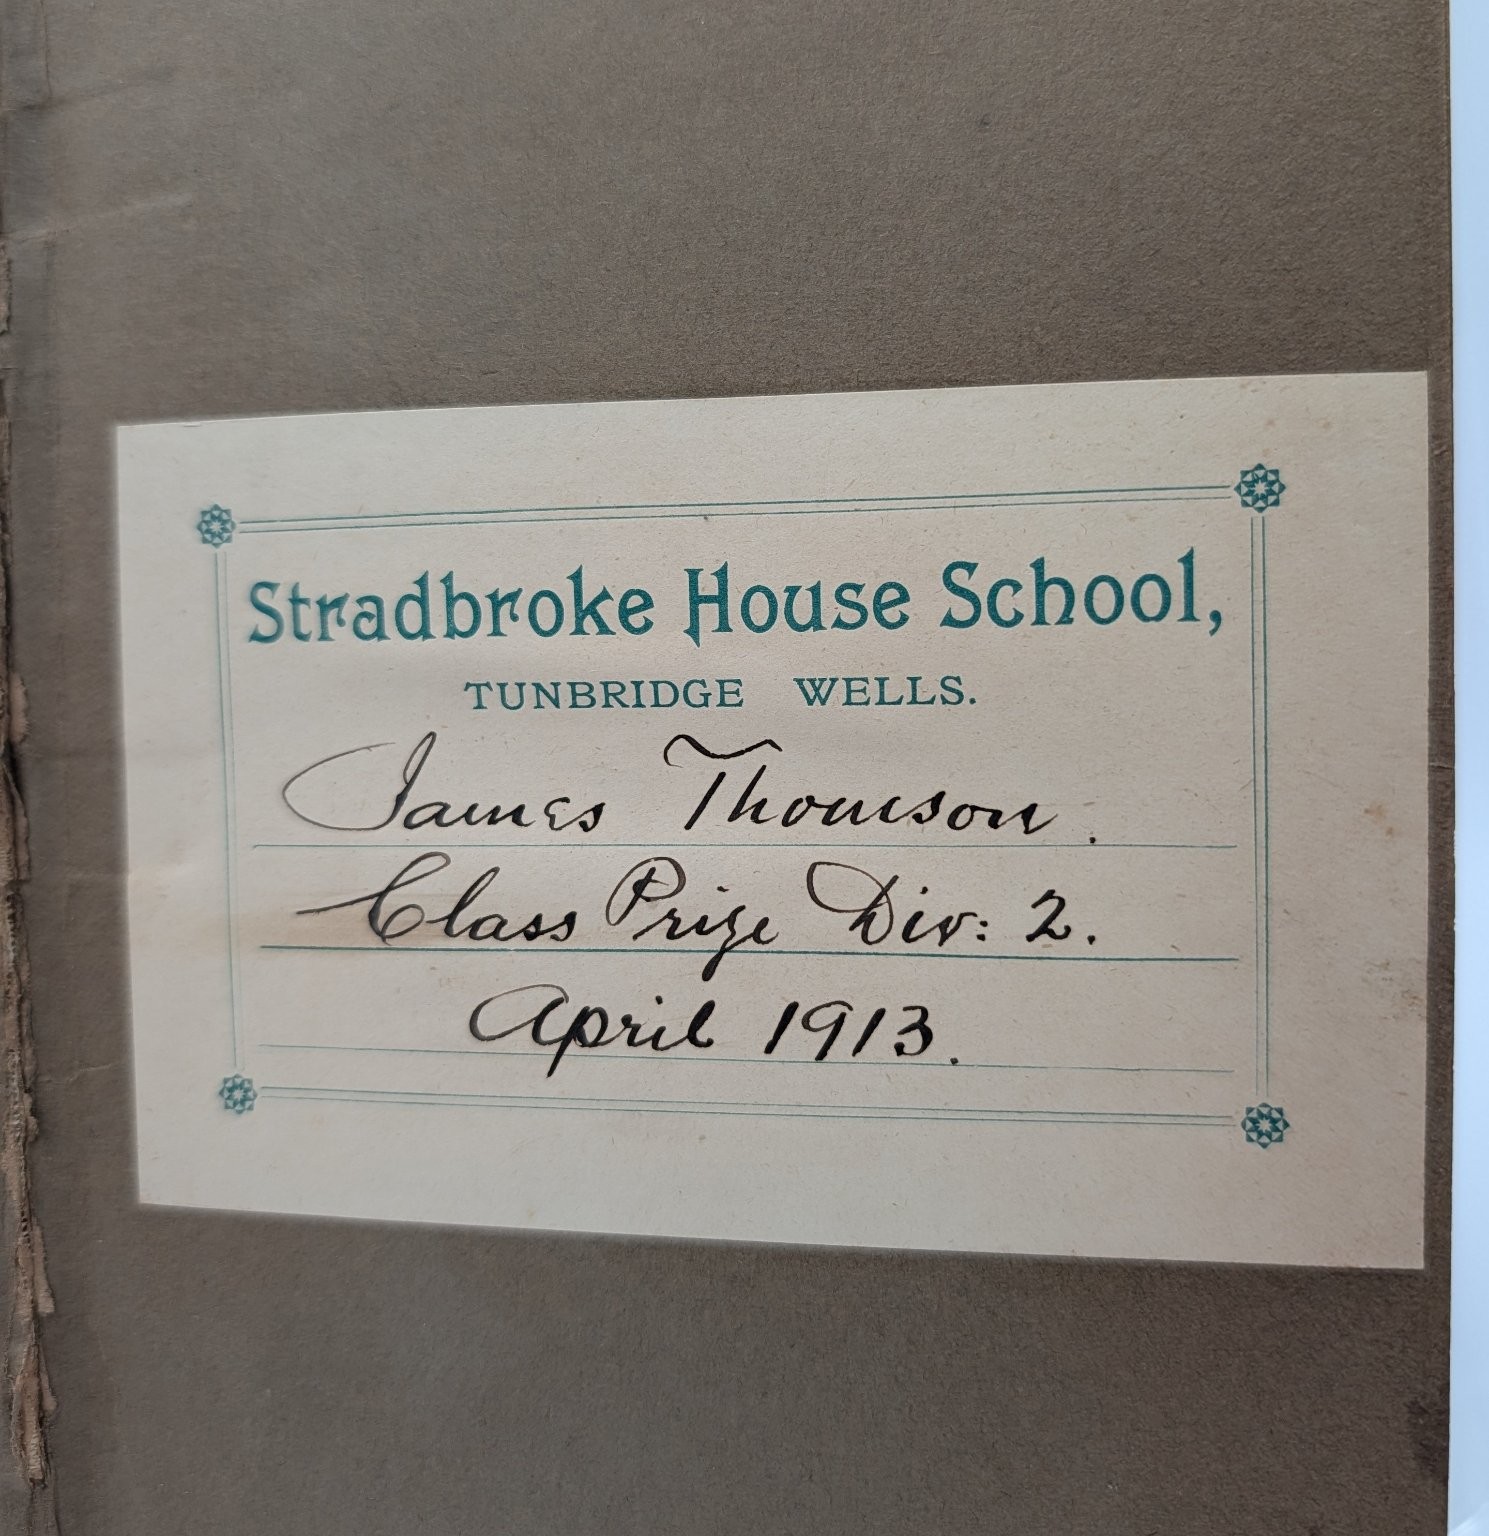 Stradbroke House School,
TUNBRIDGE WELLS.
James Thomson.
Class Prize Div: 2.
April 1913.